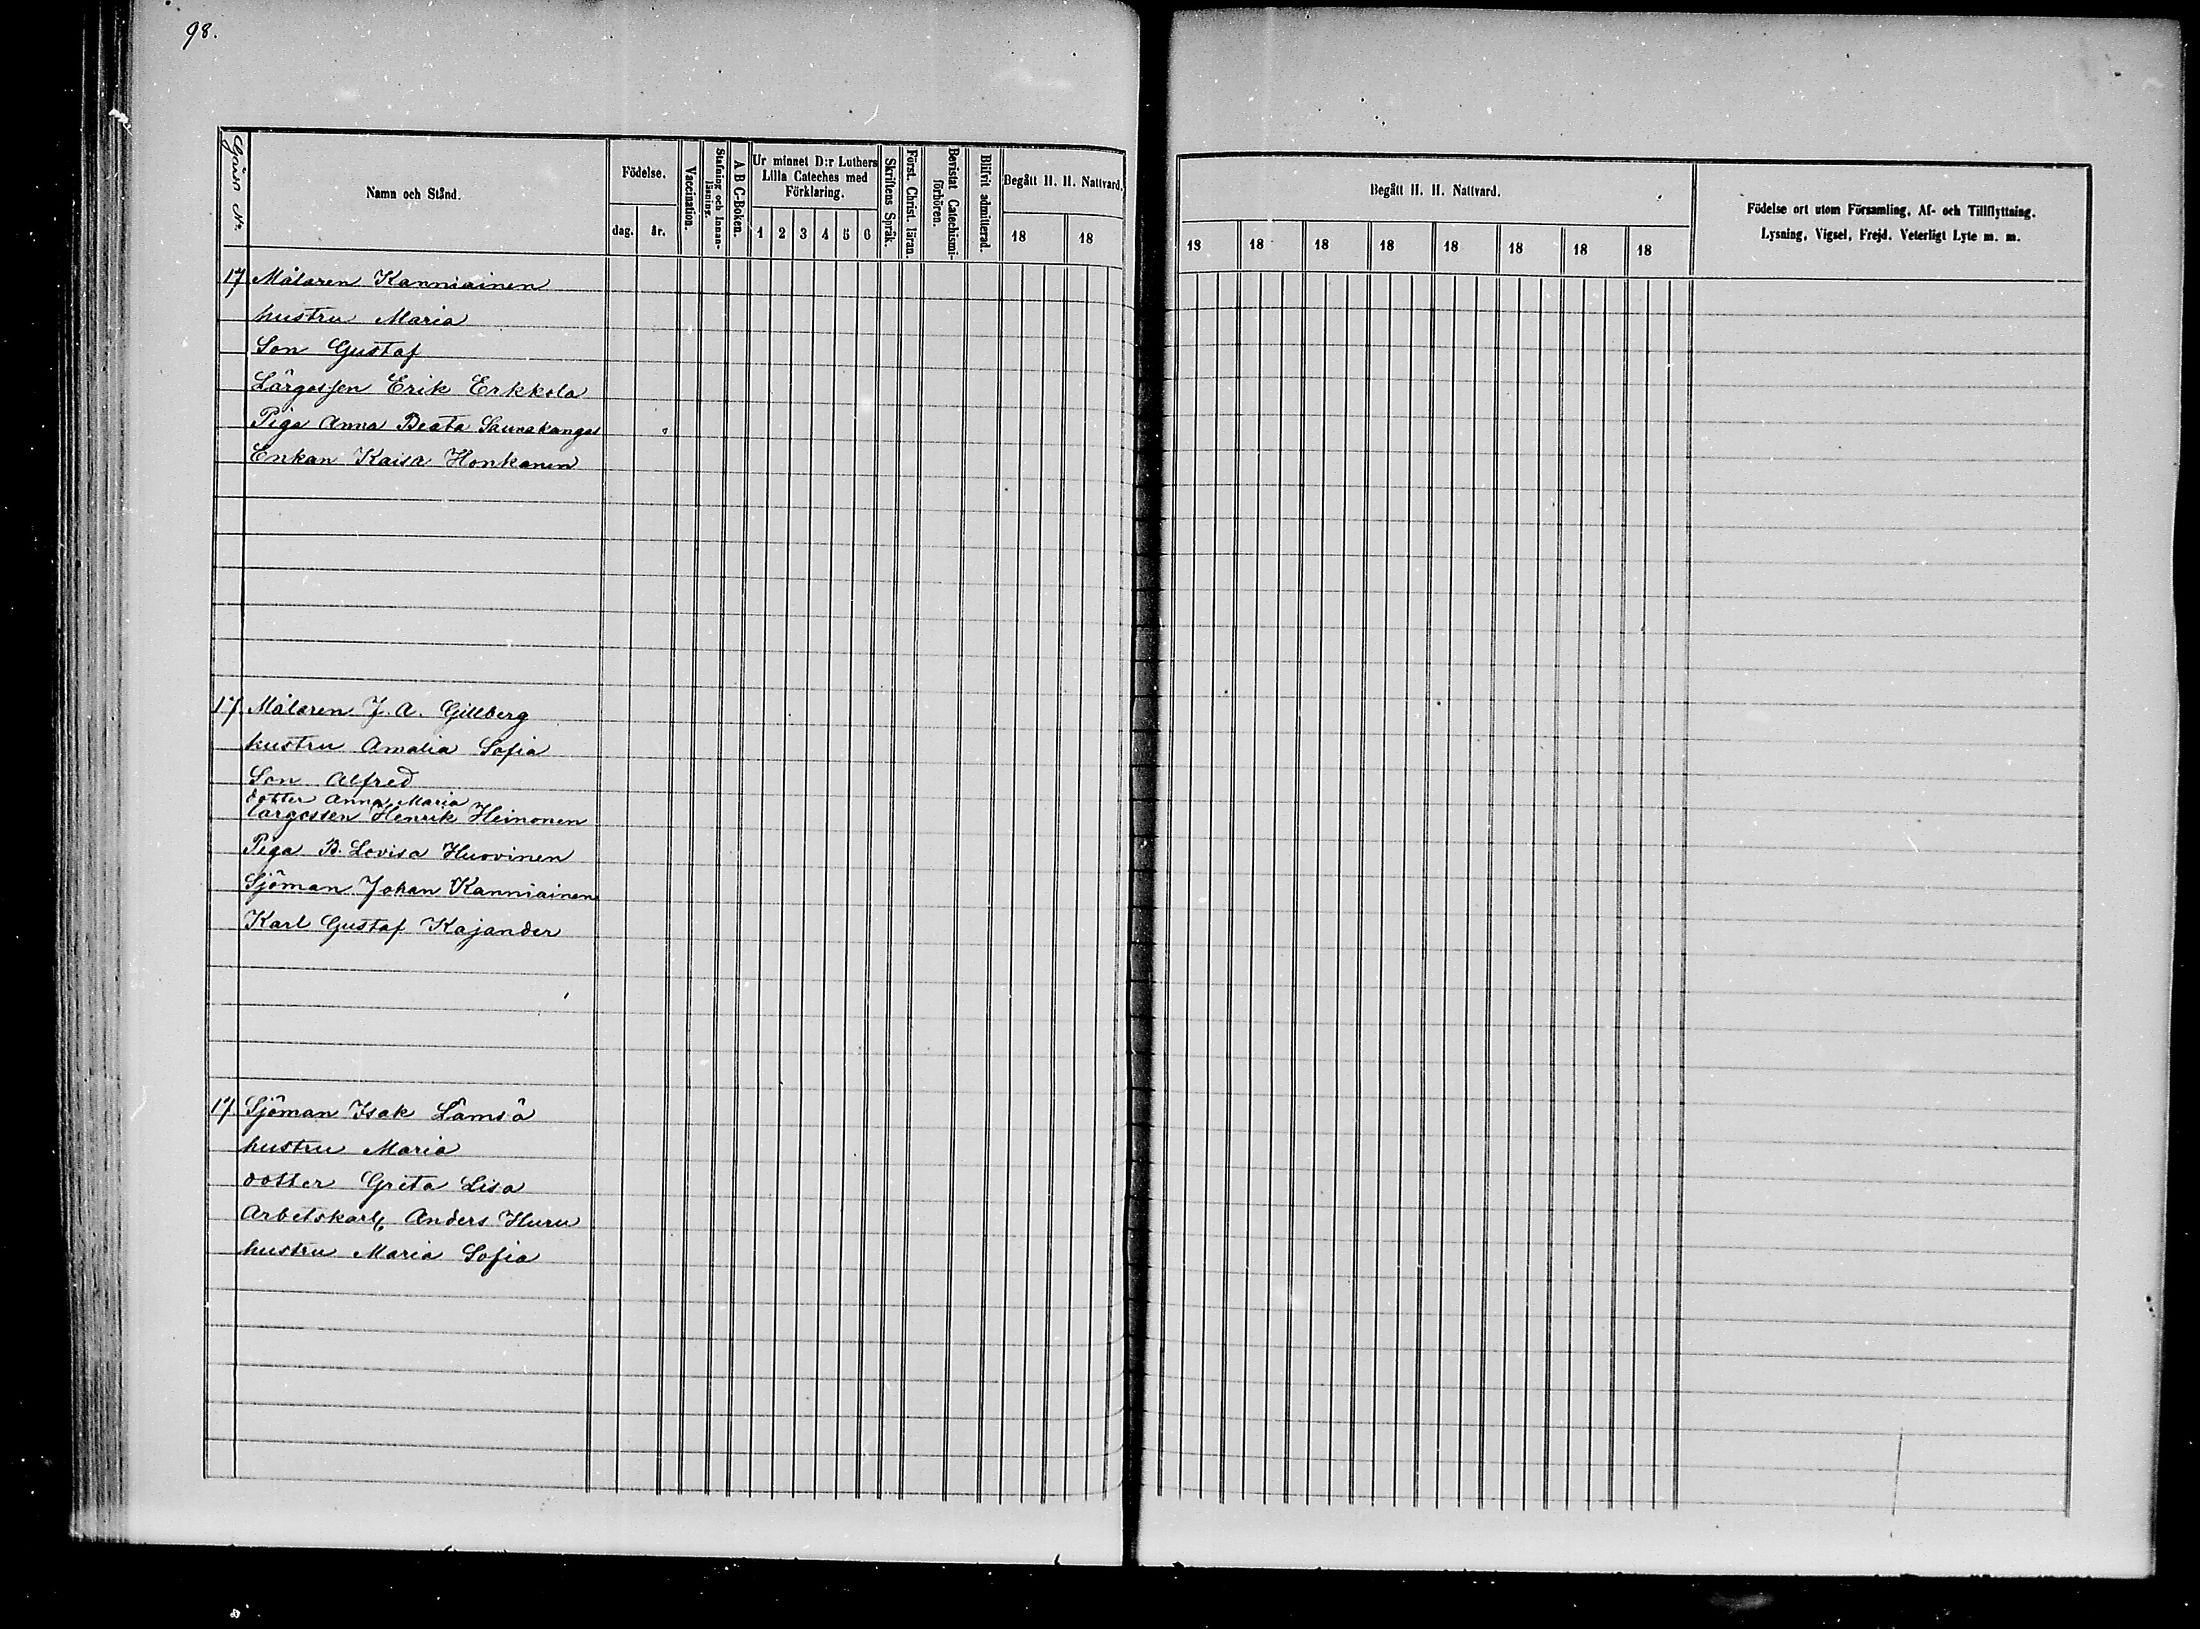 98.
Gård N:o
Namn och Stånd.
Födelse.
dag.
år.
Vaccination.
Stafning och Innan-
läsning.
A B C-Boken.
Ur minnet D:r Luthers
Lilla Cateches med
Förklaring.
1 2 3 4 5 6
Skriftens Språk.
Först. Christ. läran.
Bevistat Catechismi-
förhören.
Blifvit admitterad.
Begått H. H. Nattvard.
18 18
Begått H. H. Nattvard.
18 18 18 18 18 18 18 18
Födelse ort utom Församling, Af- och Tillflyttning.
Lysning, Vigsel, Frejd. Veterligt Lyte m. m.
17 Målaren Kanniainen
hustru Maria
Son Gustaf
Lärgossen Erik Erkkola
Piga Anna Beata Saunakangas
Enkan Kaisa Honkanen
17. Målaren J. A. Gillberg
hustru Amalia Sofia
Son Alfred
dotter Anna Maria
lärgossen Henrik Heinonen
Piga B. Lovisa Huovinen
Sjöman Johan Kanniainen
Karl Gustaf Kajander
17. Sjöman Isak Lämsä
hustru Maria
dotter Greta Lisa
Arbetskarl Anders Huru
hustru Maria Sofia